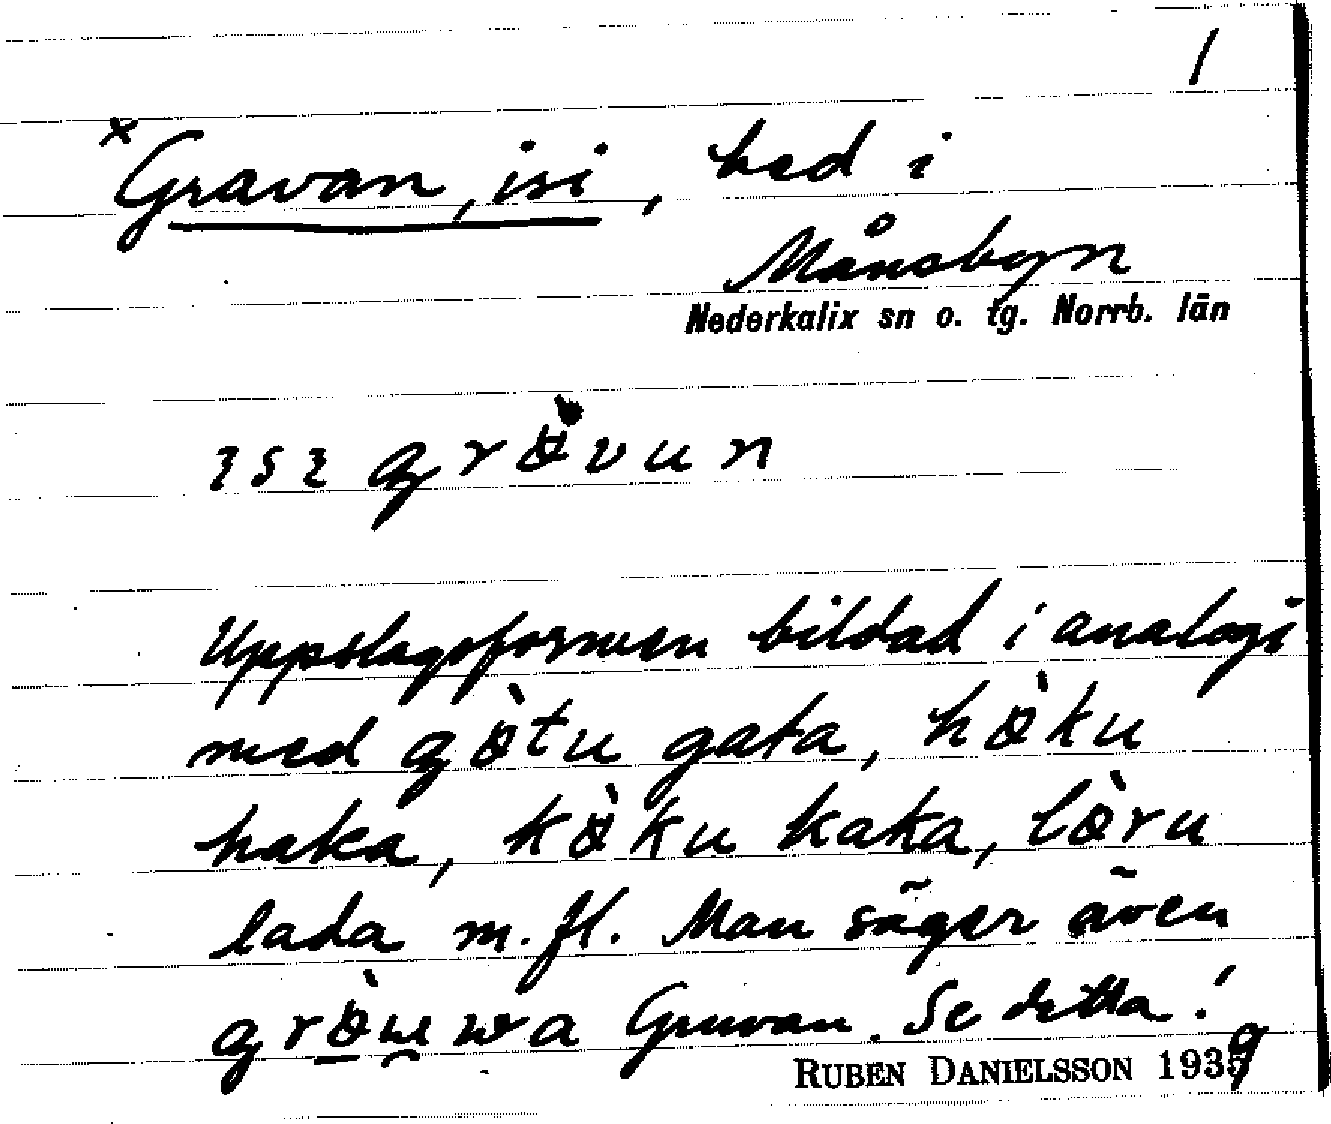 1
×Gravan, isi, hed i
Månsbyn
Nederkalix sn o. tg. Norrb. län
ɿsɿ grövun
Uppslagsformen bildad i analogi
med götu gata, höku
haka, köku kaka, löru
lada m.fl. Man säger även
Gruvan. Se detta!
RUBEN DANIELSSON 1939